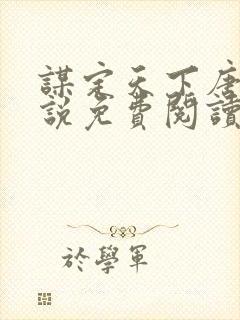 謀定天下唐
說免費閱讀
於學軍